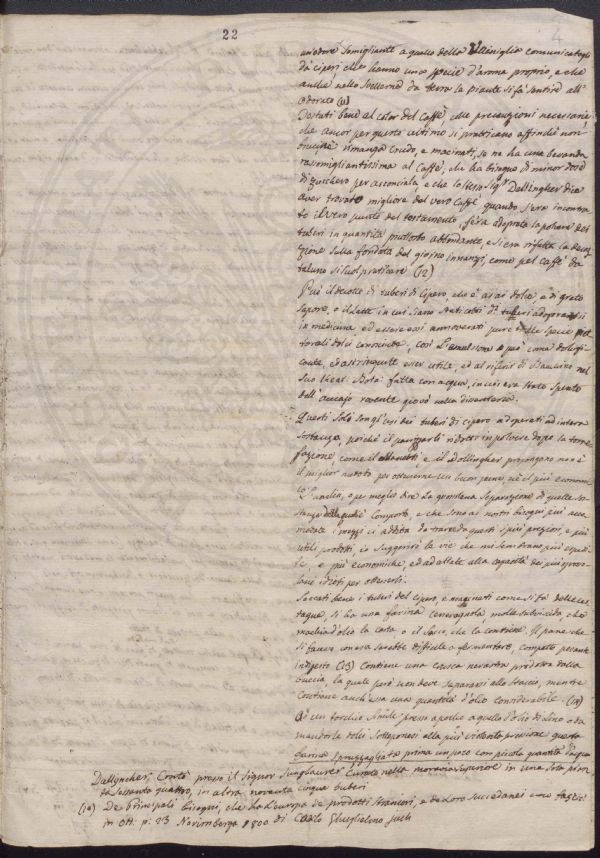 22
un odore somigliante a quello della Viniglia comunicatogli
da ciperi, che hanno una specie d'aroma proprio, e che
anche nello sveller da terra la pianta si fà sentire all'
odorato (11)
Tostati bene al color del Caffè, colle precauzioni necessarie,
che ancor per questo ultimo si praticano affinchè non
bruci, nè rimanga crudo, e macinati, se ne ha una bevanda
rassomigliantissima al Caffè, che ha bisogno di minor dose
di zucchero per acconciarla, e che lo stesso Sig.r Dallingher dice
aver trovato migliore del vero Caffè quando s'era incontra
to il vero punto del tostamento, s'era adoprata la polvere dei
tuberi in quantità piuttosto abbondante, e si era rifatta la
zione sulla fondata del giorno innanzi, come pel Caffè da
taluno si suol praticare (12)
Può il decotto di tuberi di Cipero, che è assai dolce, e di grato
sapore, o il latte in cui siano stati cotti d.i tuberi adoprarsi
in medicina ed essere essi annoverati pure alle specie pet
torali dolci conosciute, così l'emulsione può come dolcifi
cante, ed astringente esser utile, ed al riferir di Bauhino nel
suo theat. Bota. fatta con acqua, in cui era stato spento
dell'acciajo rovente giovò nella dissenteria.
Questi soli son gl'usi dei tuberi di cipero adoperati ad intera
sostanza, poichè il panizzarli ridotti in polvere dopo la torre
fazione, come il e il Dollingher propongono non è
il miglior metodo per ottenerne un buon pane, nè il più economi
co. L'analisi, o per meglio dire la grossolana separazione di quelle so
stanze delle quali è composto, e che sono ai nostri bisogni più acco
modate i mezzi ci addita da trarre da questi i più preziosi, e più
utili prodotti, io suggerirò le vie che mi sembrano più spedi
te, e più economiche, ed adattate alla capacità dei più grosso
lani idioti per ottenerli.
Seccati bene i tuberi del cipero, e macinati come si fà delle cas
tagne, si ha una farina cenerognola, molto subvisida, che
macchia d'olio la carta, o il sacco, che la contiene. Il pane che
si facesse con essa sarebbe difficile a fermentare, compatto pesante
indigesto (13) Contiene una crusca nerastra prodotta dalla
buccia, la quale però non deve separarsi allo staccio, mentre
contiene anch'essa una quantità d'olio considerabile. (14)
Ad un torchio simile presso a poco a quello d'olio di lino, o da
mandorle dolci sottoponesi alla più violenta pressione questa
farina spruzzagliata prima un poco con piccola quantità d'acqua
Dallyncher, Contò presso il Signor Sunglaurer Curato nella moravia superiore in una sola pian
ta sessanta quattro, in altra novanta cinque tuberi
(10) De Principali bisogni, che ha l'europa de prodotti stranieri, e de loro succedanei
in Ott: p: 23 Norimberga 1800 di Carlo Guglielmo juch